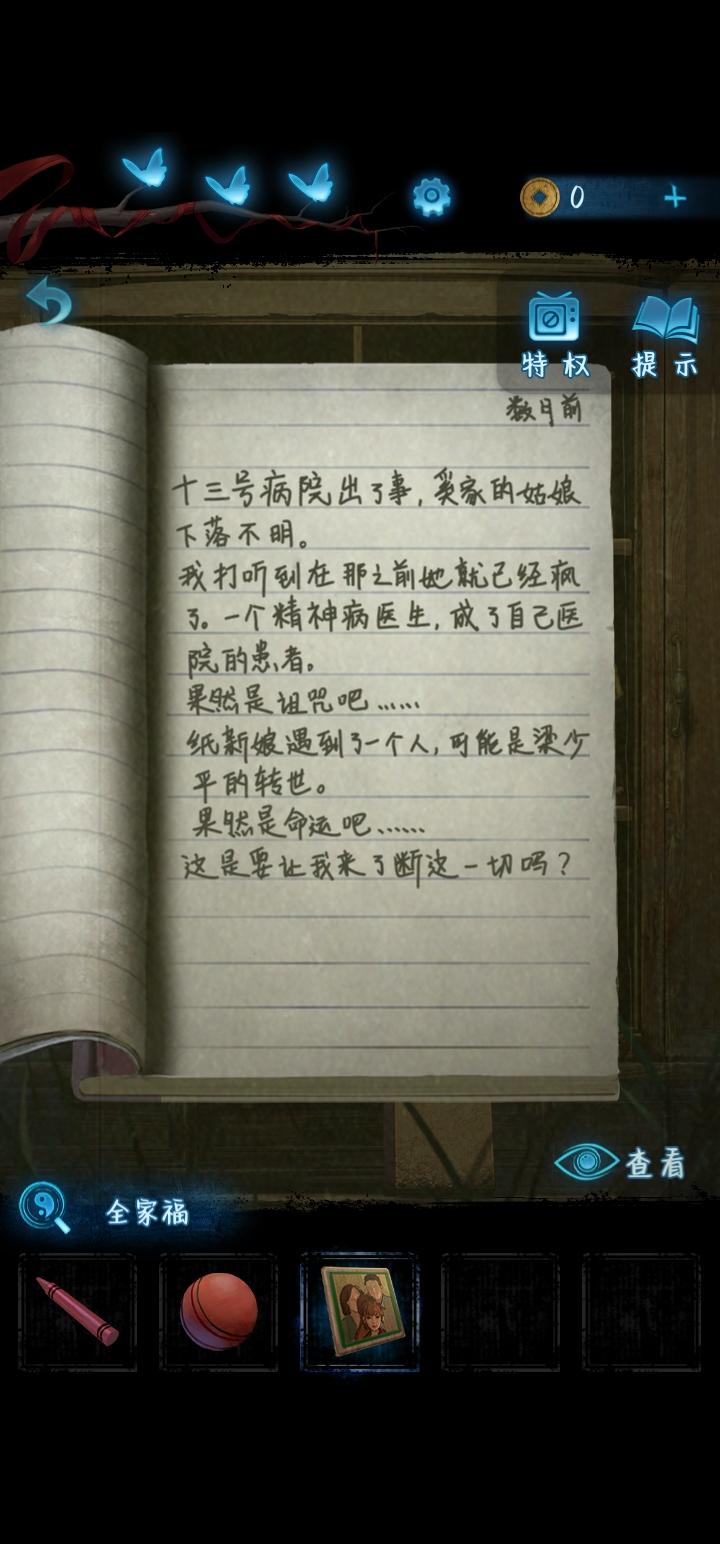 0
特权 提示
数月前
十三号病院出了事,奚家的姑娘
下落不明。
我打听到在那之前她就已经疯
了。一个精神病医生,成了自己医
院的患者。
果然是诅咒吧……
纸新娘遇到了一个人,可能是梁少
平的转世。
果然是命运吧……
这是要让我来了断这一切吗?
查看
全家福